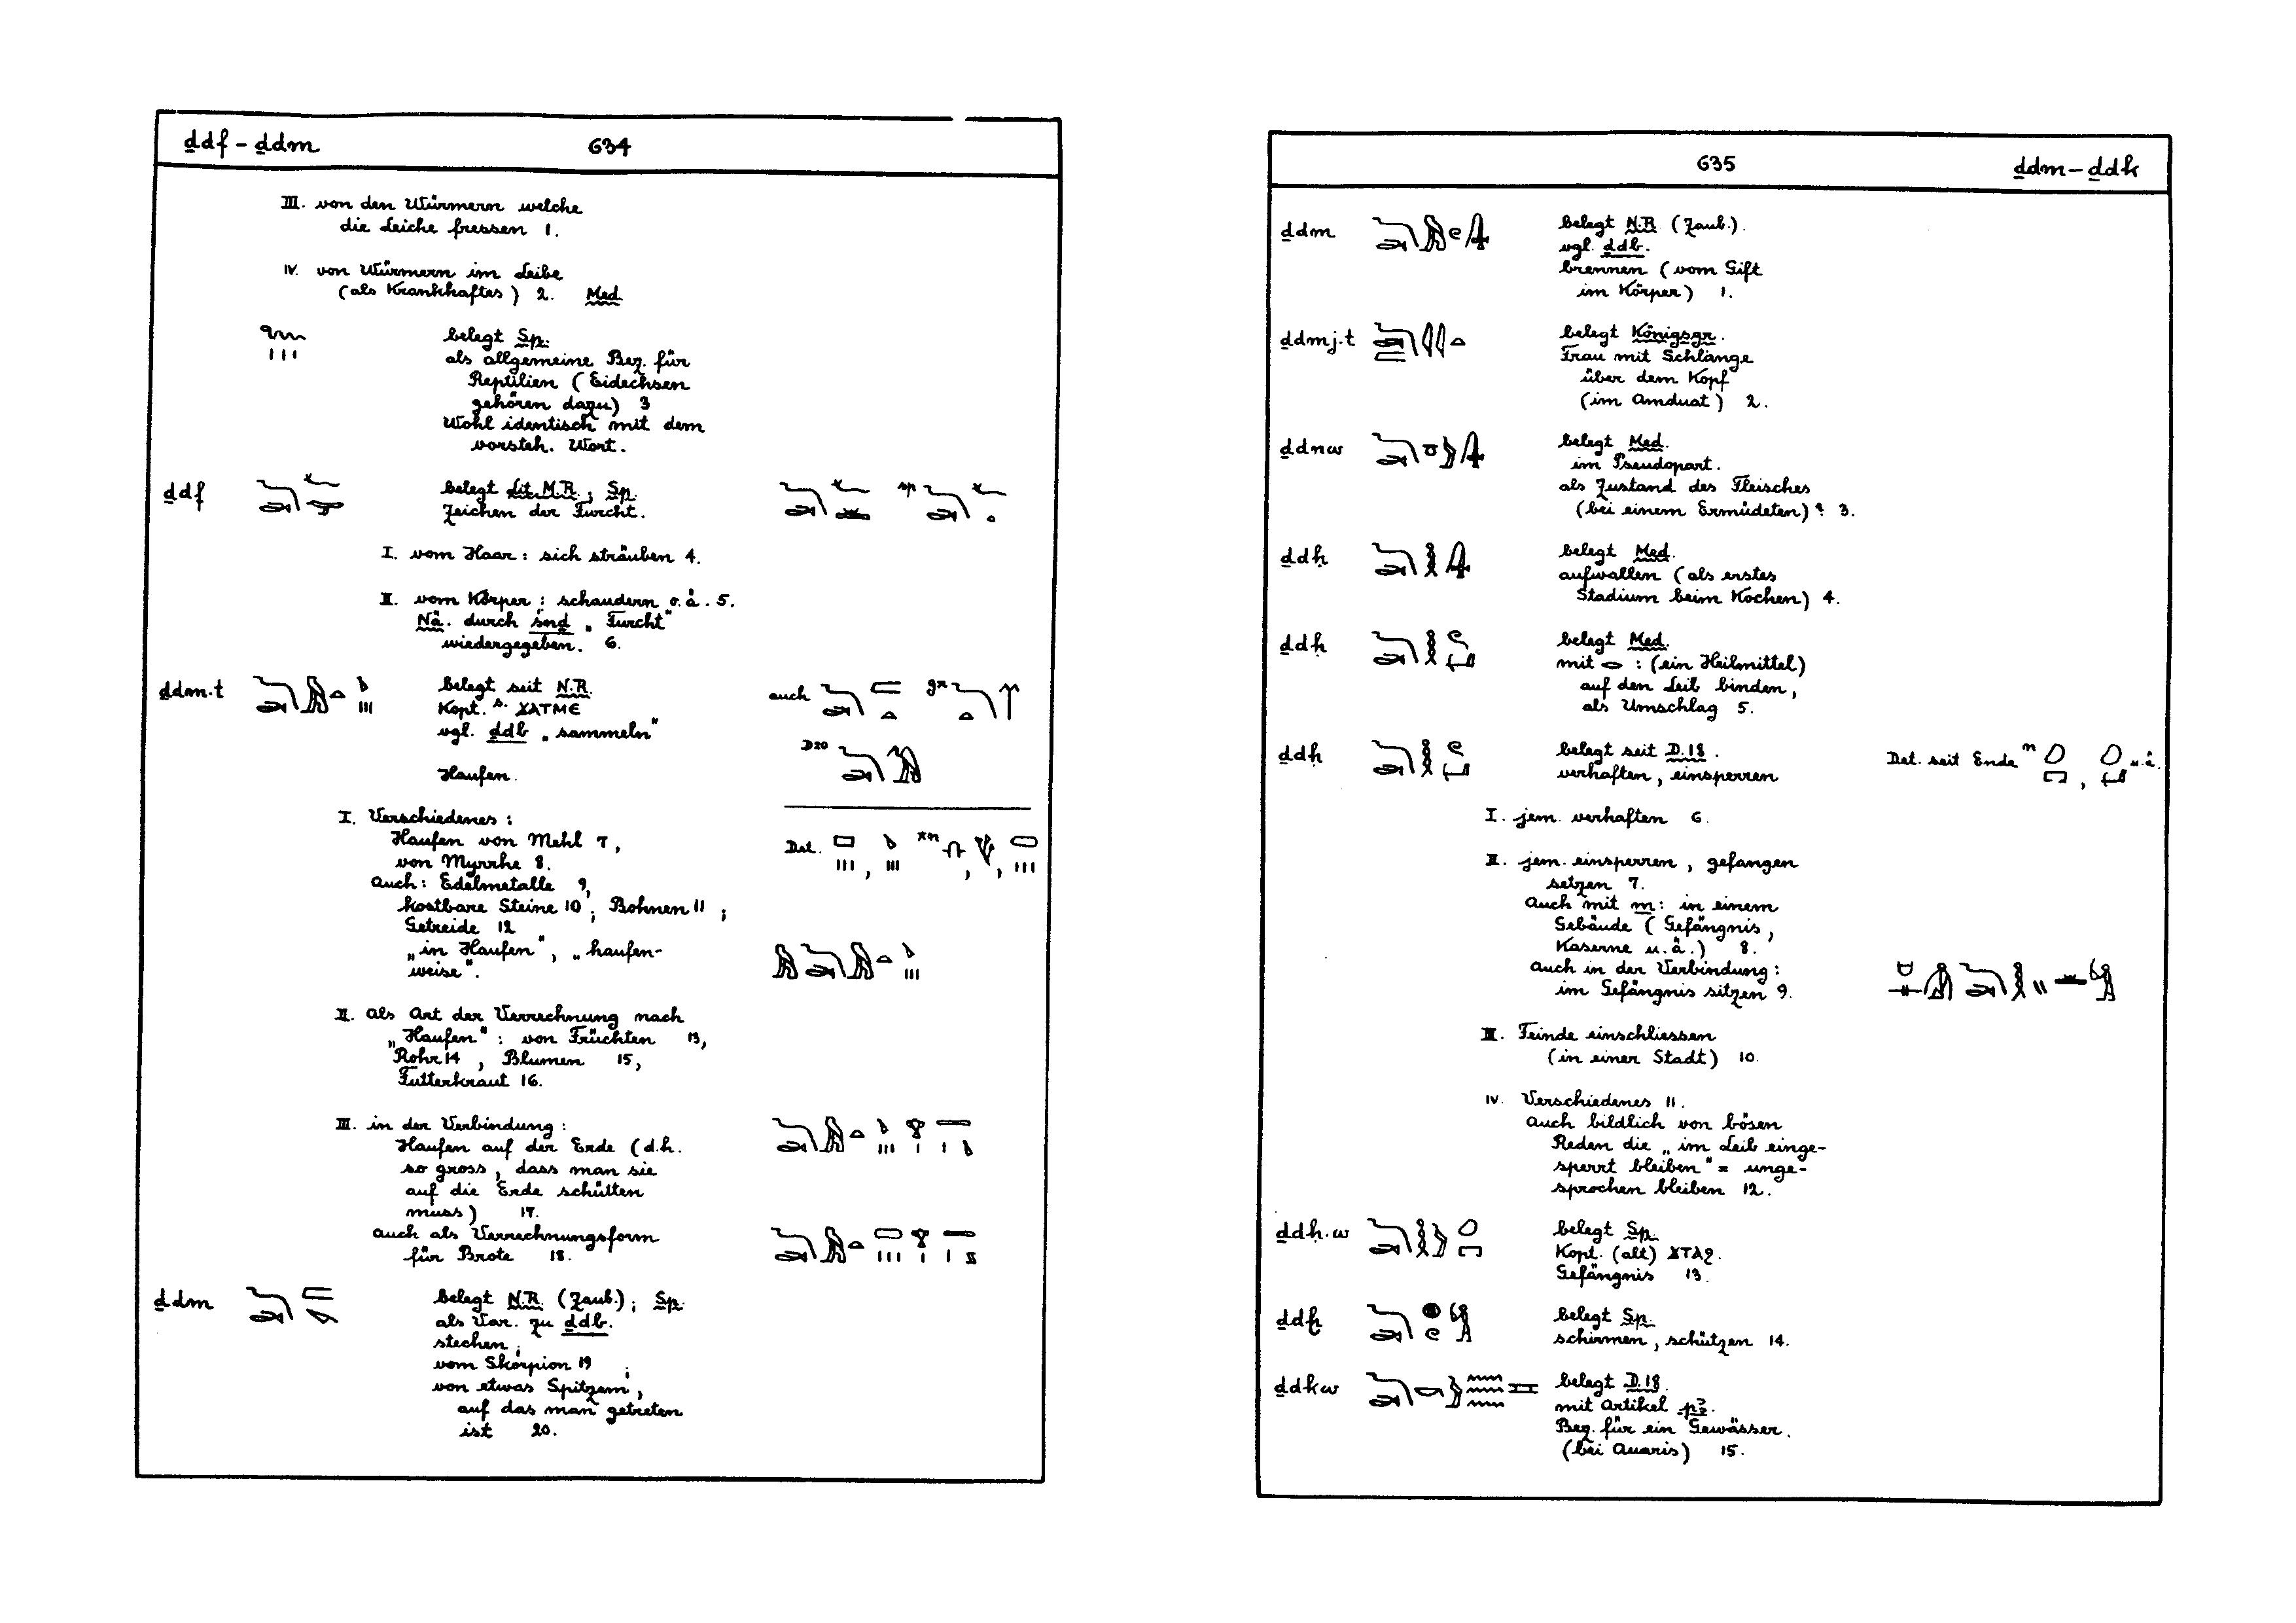 ḏdf – ḏdm 634
III. von den Würmern welche
die Leiche fressen 1.
IV. von Würmern im Leibe
(als Krankhaftes) 2. Med.
belegt Sp.
als allgemeine Bez. für
Reptilien (Eidechsen
gehören dazu) 3
Wohl identisch mit dem
vorsteh. Wort.
ḏdf belegt Lit. M.R.; Sp.
Zeichen der Furcht. sp
I. vom Haar: sich sträuben 4.
II. vom Körper: schaudern o.ä. 5.
Nä. durch śnḏ „Furcht“
wiedergegeben. 6.
ḏdm.t belegt seit N.R. auch gr
Kopt. s. ϪΑΤΜЄ
vgl. ḏdb „sammeln“
D20
Haufen.
I. Verschiedenes:
Haufen von Mehl 7, Det.
von Myrrhe 8.
auch: Edelmetalle 9,
kostbare Steine 10; Bohnen 11;
Getreide 12
„in Haufen“, „haufen-
weise“.
II. als Art der Verrechnung nach
„Haufen“: von Früchten 13,
Rohr 14, Blumen 15,
Futterkraut 16.
III. in der Verbindung:
Haufen auf der Erde (d.h.
so gross, dass man sie
auf die Erde schütten
muss) 17.
auch als Verrechnungsform
für Brote 18.
ḏdm belegt N.R. (Zaub.); Sp.
als Var. zu ḏdb.
stechen;
vom Skorpion 19;
von etwas Spitzem,
auf das man getreten
ist 20.
635 ḏdm – ḏdk
ḏdm belegt N.R. (Zaub.).
vgl. ḏdb.
brennen (vom Gift
im Körper) 1.
ḏdmj.t belegt Königsgr.
Frau mit Schlange
über dem Kopf
(im Amduat) 2.
ḏdnw belegt Med.
im Pseudopart.
als Zustand des Fleisches
(bei einem Ermüdeten)? 3.
ḏdḥ belegt Med.
aufwallen (als erstes
Stadium beim Kochen) 4.
ḏdḥ belegt Med.
mit 𓂋 : (ein Heilmittel)
auf den Leib binden,
als Umschlag 5.
ḏdḥ belegt seit D.18. Det. seit Ende n , u.ä.
verhaften, einsperren
I. jem. verhaften 6.
II. jem. einsperren, gefangen
setzen 7.
auch mit m: in einem
Gebäude (Gefängnis,
Kaserne u.ä.) 8.
auch in der Verbindung:
im Gefängnis sitzen 9.
III. Feinde einschliessen
(in einer Stadt) 10.
IV. Verschiedenes 11.
auch bildlich von bösen
Reden die „im Leib einge-
sperrt bleiben“ = unge-
sprochen bleiben 12.
ḏdḥ.w belegt Sp.
Kopt. (alt) ϪΤΑϨ.
Gefängnis 13.
ḏdḫ belegt Sp.
schirmen, schützen 14.
ḏdkw belegt D.18
mit Artikel pꜣ.
Bez. für ein Gewässer.
(bei Auaris) 15.